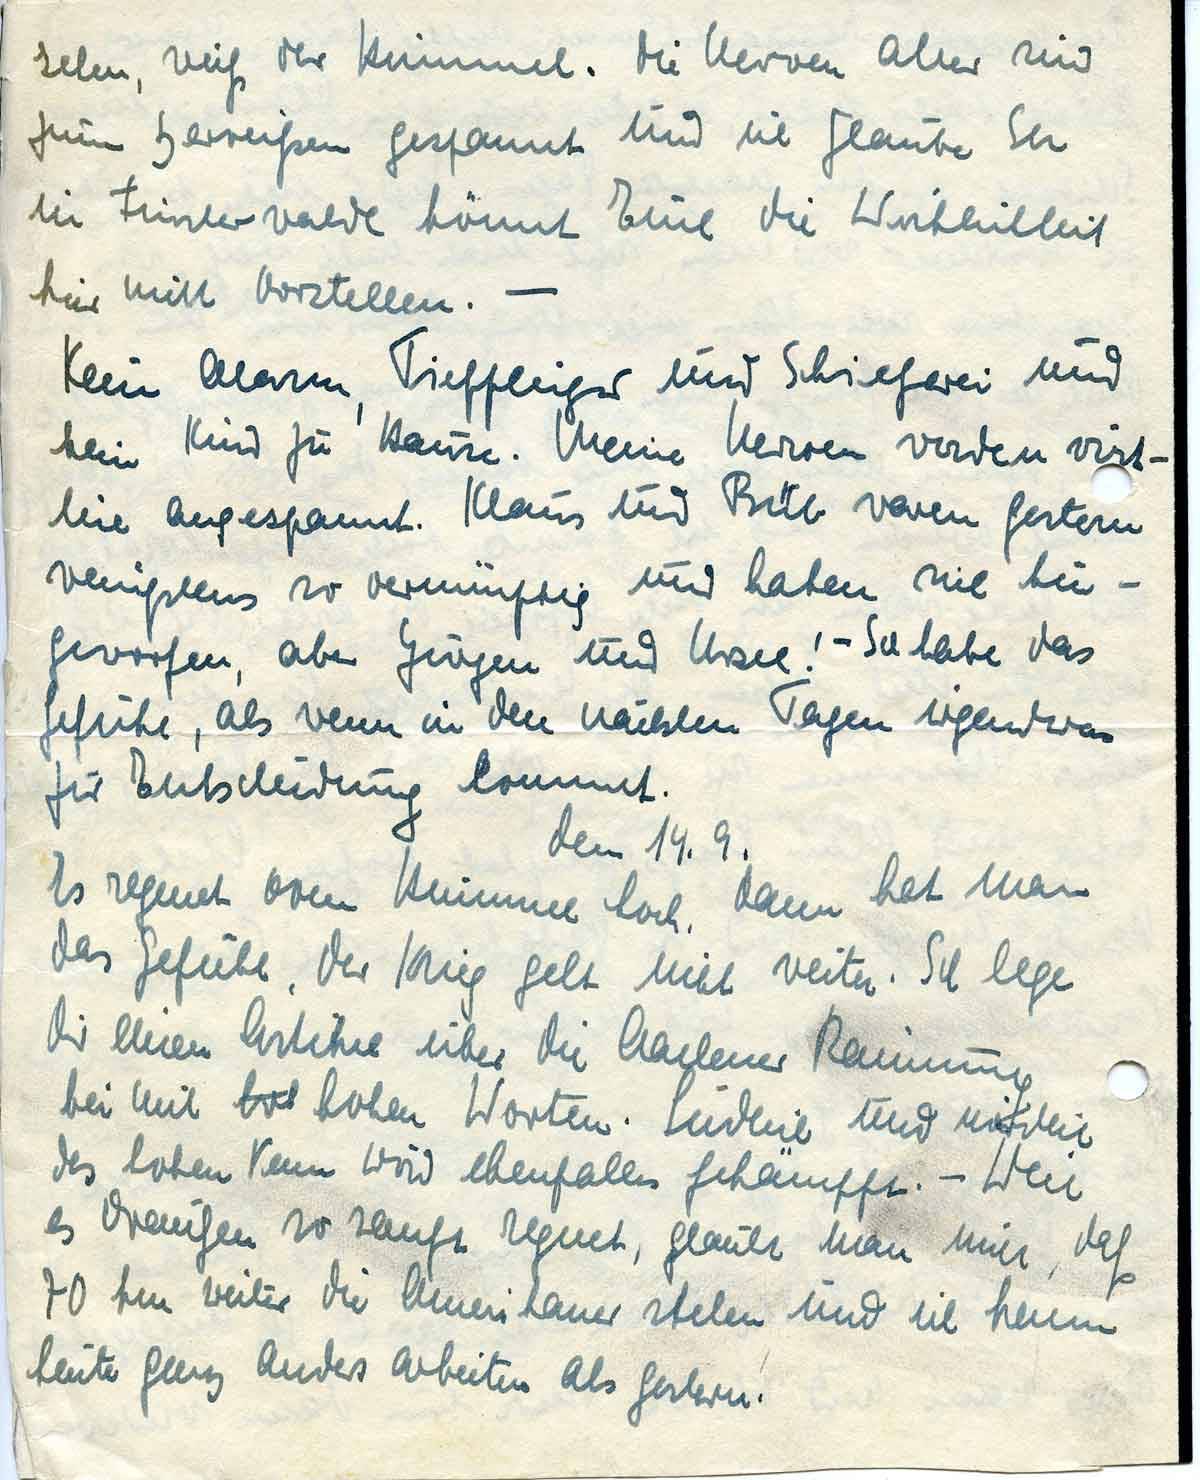 sehen, weiß der Himmel. Die Nerven aber sind
zum Zerreißen gespannt und ich glaube Ihr
in Finsterwalde könnt Euch die Wirklichkeit
hier nicht vorstellen. —
Kein Alarm, Tiefflieger und Schießerei und
kein Kind zu Hause. Meine Nerven werden wirk-
lich angespannt. Klaus und Bub waren gestern
wenigstens so vernünftig und haben sich hin-
geworfen, aber Jürgen und Ursel! - Ich habe das
Gefühl, als wenn in den nächsten Tagen irgendwas
zur Entscheidung kommt.
den 14. 9.
Es regnet vom Himmel hoch, dann hat man
das Gefühl, der Krieg geht nicht weiter. Ich lege
Dir einen Artikel über die Aachener Räumung
bei mit hohen Worten. Südlich und nördlich
des hohen Venn wird ebenfalls gekämpft. - Weil
es draußen so sanft regnet, glaubt man nicht, daß
70 km weiter die Amerikaner stehen und ich kann
heute ganz anders arbeiten als gestern!